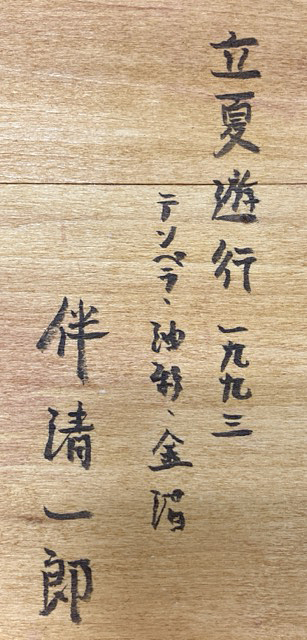 立夏遊行 一九九三
テンペラ、油彩、金箔
伴清一郎